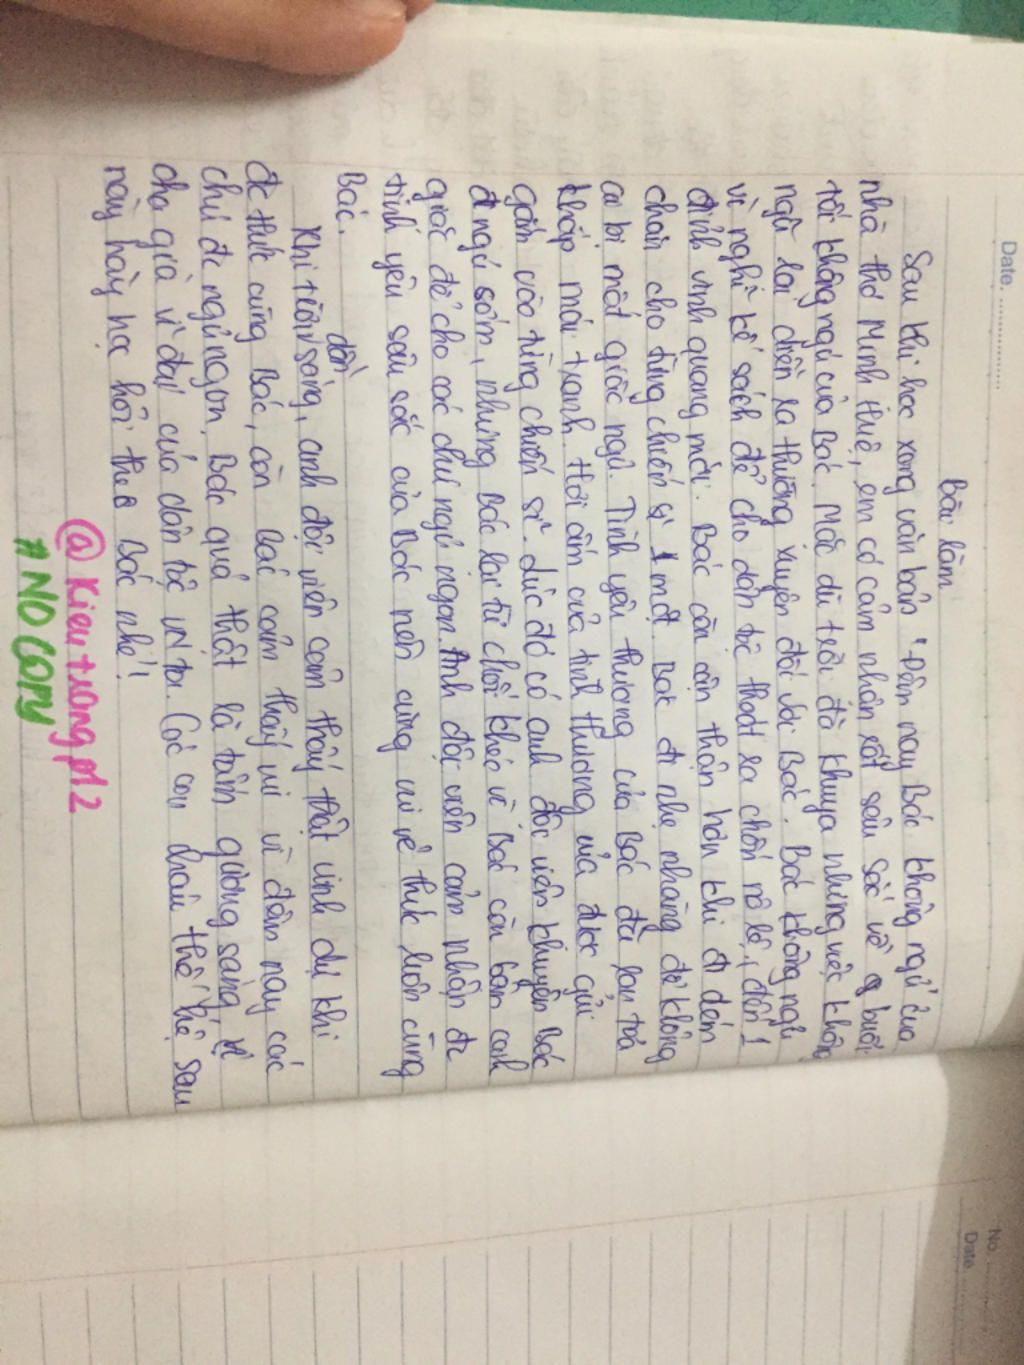 Date. ..................
Bài làm
Sau khi học xong văn bản "Đêm nay Bác không ngủ" của
nhà thơ Minh Huệ, em có cảm nhận rất sâu sắc về buổi
tối không ngủ của Bác. Mặc dù trời đã khuya nhưng việc không
ngủ lại diễn ra thường xuyên đối với Bác. Bác không ngủ
vì nghĩ kế sách để cho dân tộc thoát ra chốn nô lệ, đến 1
đỉnh vinh quang mới. Bác còn cẩn thận hơn khi đi dém
chăn cho từng chiến sĩ 1 một. Bác đi nhẹ nhàng để không
ai bị mất giấc ngủ. Tình yêu thương của Bác đã lan toả
khắp mái tranh. Hơi ấm của tình thương của đc gửi
gắm vào từng chiến sĩ. Lúc đó có anh đội viên khuyên Bác
đi ngủ sớm, nhưng Bác lại từ chối khéo vì Bác còn bận canh
giấc để cho các chú ngủ ngon. Anh đội viên cảm nhận đc
tình yêu sâu sắc của Bác nên cũng vui vẻ thức luôn cùng
Bác.
Khi trời dần sáng, anh đội viên cảm thấy thật vinh dự khi
đc thức cùng Bác, còn Bác cảm thấy vui vì đêm nay các
chú đc ngủ ngon. Bác quả thật là tấm gương sáng, vị
cha già vĩ đại của dân tộc VN ta. Các con cháu thế hệ sau
này hãy học hỏi theo Bác nhé!
@ Kieutrangpt2
# NO COPY
No.
Date